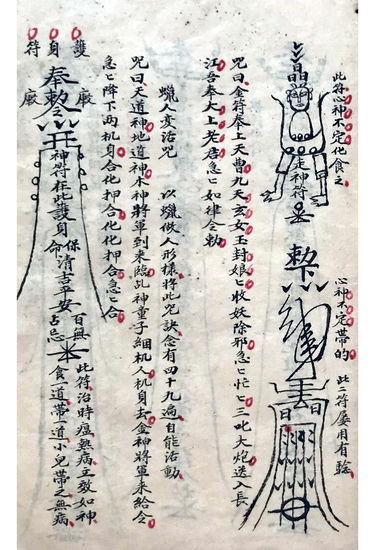 此符心神不定化食之
晶
走神符
敕
心神不定帶的
此二符屢用有驗
日 日
咒曰金符奉上天曹九天玄女玉封娘〻收妖除邪急〻忙〻三叱大炮送入長
江吾奉大上老唐急〻如律令勅
蠟人変活咒 以蠟做人形樣將此咒訣念有四十九過自能活動
咒曰天道神地道神木神將軍到來臨乩神童子細机人机身去金神將軍來給令
急〻降下两机身合化押合化化押合急〻合
護身符
廠 奉勅令 廠
神符在此護身保命清吉平安百無占忌
此符治時瘟熱病立效如神
食一道帶一道小兒帶之無病